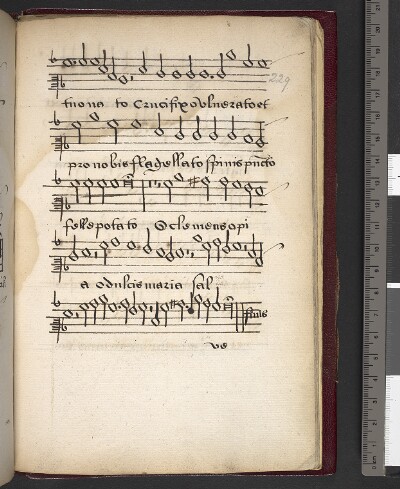 229
tuo na to Crucifixo vulnerato et
pro nobis flagellato spinis pu̅cto
felle potato O clemens o pi
a o dulcis maria sal
finis
ve